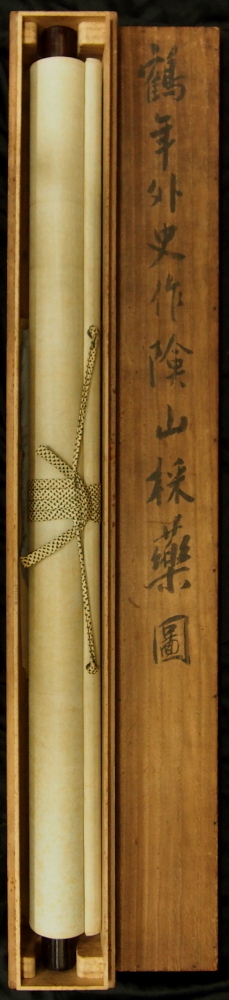 鶴年外史作険山採薬圖